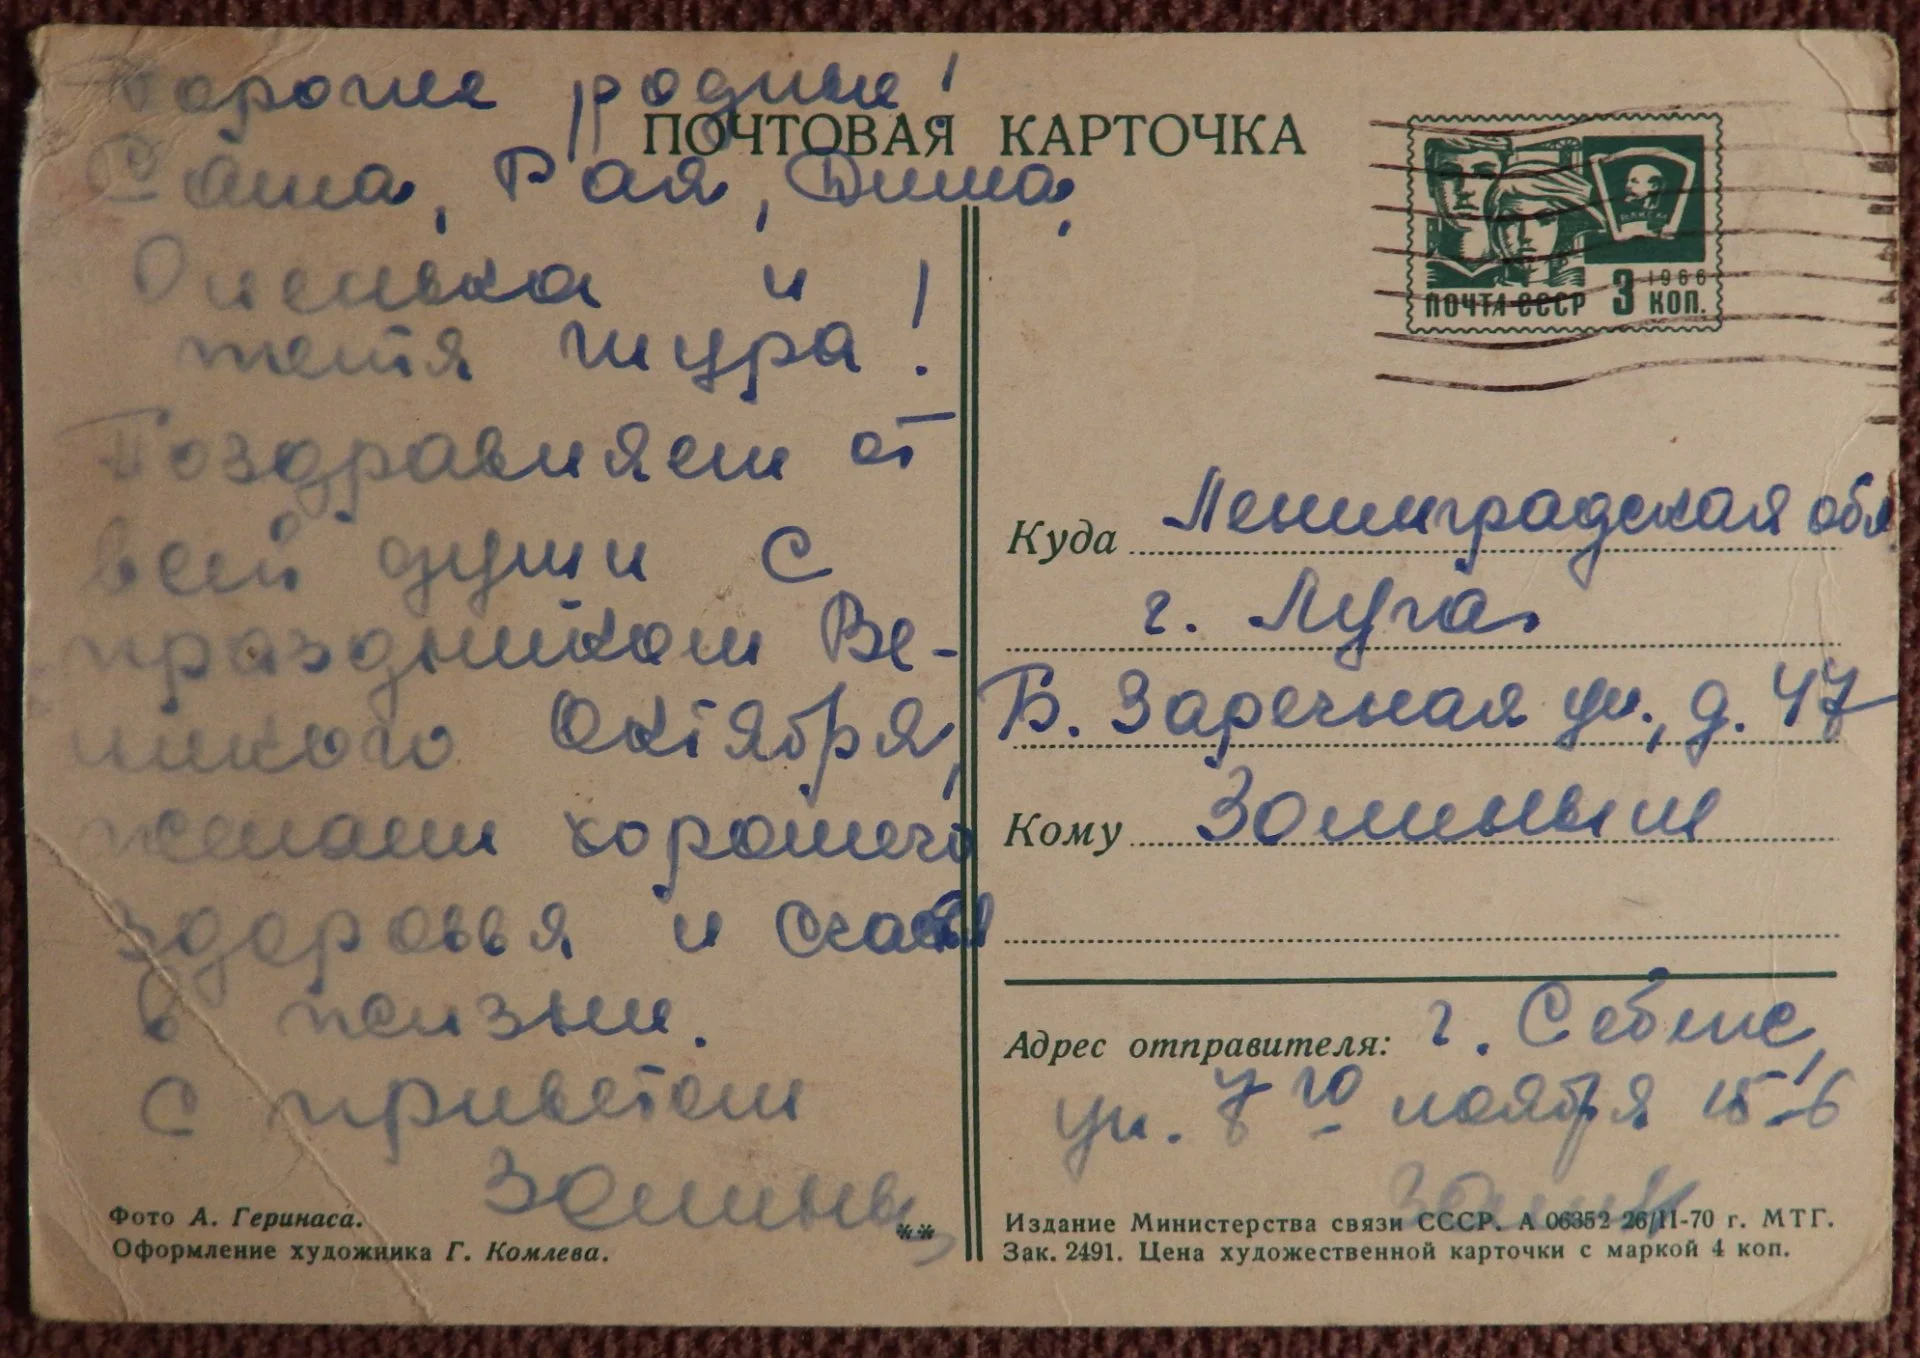 Дорогие родные!
Саша, Рая, Дима,
Оленька и
тетя Шура!
Поздравляем от
всей души с
праздником Ве-
ликого Октября,
желаем хорошего
здоровья и счастья
в жизни.
С приветом
Зомины
Фото А. Геринаса.
Оформление художника Г. Комлева.
**
ПОЧТОВАЯ КАРТОЧКА
ПОЧТА СССР 3 КОП.
1966
Куда Ленинградская обл.
г. Луга,
Б. Заречная ул., д. 47
Кому Зоминым
Адрес отправителя: г. Себеж,
ул. 7го ноября 15-6
Издание Министерства связи СССР. А 06352 26/II-70 г. МТГ.
Зак. 2491. Цена художественной карточки с маркой 4 коп.